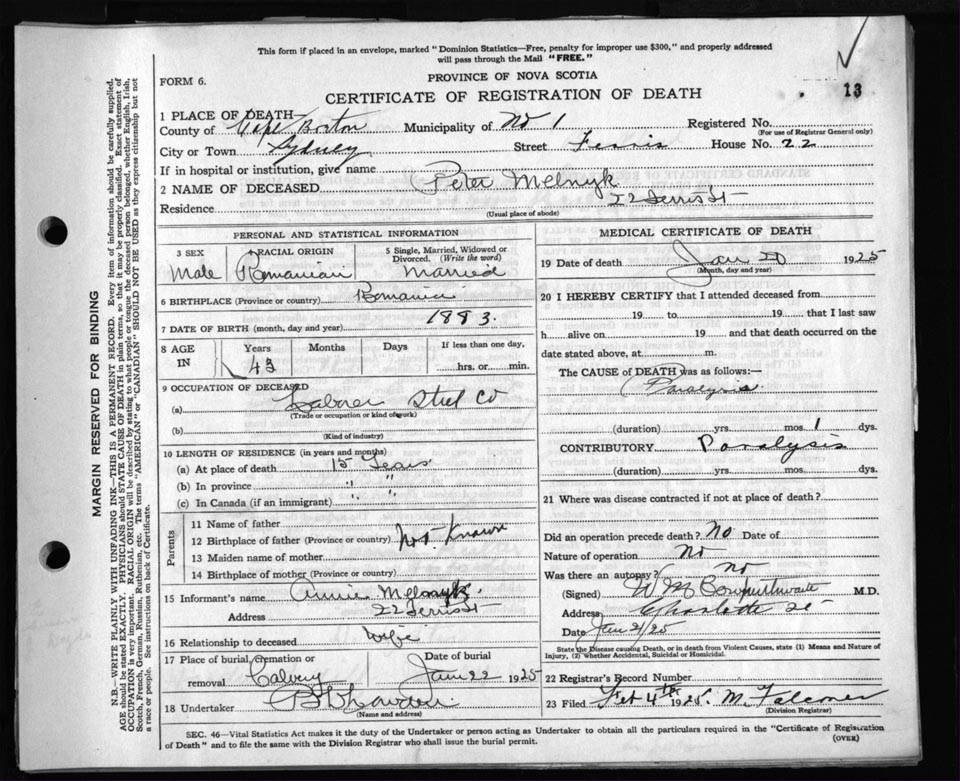 This form if placed in an envelope, marked "Dominion Statistics—Free, penalty for improper use $300," and properly addressed
will pass through the Mail "FREE."
FORM 6.
PROVINCE OF NOVA SCOTIA
13
CERTIFICATE OF REGISTRATION OF DEATH
1 PLACE OF DEATH
County of Cape Breton Municipality of No 1 Registered No.
(For use of Registrar General only)
City or Town Sydney Street Ferris House No. 22
If in hospital or institution, give name
2 NAME OF DECEASED Peter Melnyk
Residence 22 Ferris St
(Usual place of abode)
PERSONAL AND STATISTICAL INFORMATION
3 SEX RACIAL ORIGIN 5 Single, Married, Widowed or
Divorced. (Write the word)
Male Romanian Married
6 BIRTHPLACE (Province or country) Romania
7 DATE OF BIRTH (month, day and year) 1883.
8 AGE IN Years Months Days If less than one day,
43 hrs. or min.
9 OCCUPATION OF DECEASED
(a) Laborer Steel Co
(Trade or occupation or kind of work)
(b)
(Kind of industry)
10 LENGTH OF RESIDENCE (in years and months)
(a) At place of death 15 Years
(b) In province " "
(c) In Canada (if an immigrant) " "
Parents
11 Name of father
12 Birthplace of father (Province or country) Not Known
13 Maiden name of mother
14 Birthplace of mother (Province or country)
15 Informant's name Annie Melnyk
Address 22 Ferris St
16 Relationship to deceased wife
17 Place of burial, cremation or Date of burial
removal Calvery Jan 22 1925
18 Undertaker
(Name and address)
MEDICAL CERTIFICATE OF DEATH
19 Date of death Jan 20 1925
(Month, day and year)
20 I HEREBY CERTIFY that I attended deceased from
19 to 19 that I last saw
h alive on 19 and that death occurred on the
date stated above, at m.
The CAUSE of DEATH was as follows:—
Paralysis
(duration) yrs. mos. 1 dys.
CONTRIBUTORY Paralysis
(duration) yrs. mos. dys.
21 Where was disease contracted if not at place of death?
Did an operation precede death? No Date of
Nature of operation No
Was there an autopsy? No
(Signed) W M M.D.
Address Charlotte St
Date Jan 21/25
State the Disease causing Death, or in death from Violent Causes, state (1) Means and Nature of
Injury, (2) whether Accidental, Suicidal or Homicidal.
22 Registrar's Record Number
23 Filed Feb 4th 1925. M Falconer
(Division Registrar)
SEC. 46—Vital Statistics Act makes it the duty of the Undertaker or person acting as Undertaker to obtain all the particulars required in the "Certificate of Registration
of Death" and to file the same with the Division Registrar who shall issue the burial permit.
(OVER)
MARGIN RESERVED FOR BINDING
N.B.—WRITE PLAINLY WITH UNFADING INK—THIS IS A PERMANENT RECORD. Every item of information should be carefully supplied.
AGE should be stated EXACTLY. PHYSICIANS should STATE CAUSE OF DEATH in plain terms, so that it may be properly classified. Exact statement of
OCCUPATION is very important. RACIAL ORIGIN will be described by stating to what people or tongue the deceased person belonged, whether English, Irish,
Scotch, French, German, Russian, Ruthenian, etc. The terms "AMERICAN" or "CANADIAN" SHOULD NOT BE USED as they express citizenship but not
a race or people. See instructions on back of Certificate.